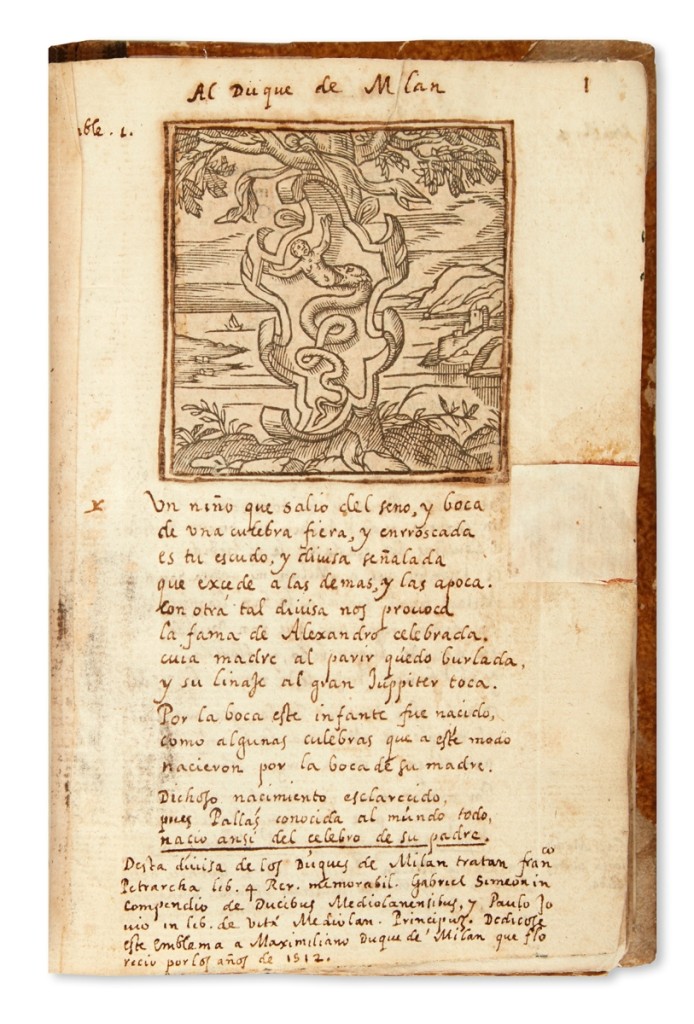 Al Duque de Mılan
1
ble. 1.
x
Un niño que salio del seno, y boca
de una culebra fiera, y enrroscada
es tu escudo, y divisa señalada
que excede a las demas, y las apoca.
Con otra tal divisa nos provoca
la fama de Alexandro celebrada.
cuia madre al parir quedo burlada,
y su linaje al gran Juppiter toca.
Por la boca este infante fue nacido,
como algunas culebras que a este modo
nacieron por la boca de su madre.
Dichoso nacimiento esclarecido,
pues Pallas conocida al mundo todo,
nacio ansi del celebro de su padre.
Desta divisa de los Duques de Milan tratan franco
Petrarcha lib. 4 Rer. memorabil. Gabriel Simeon in
compendio de Ducibus Mediolanensibus, y Paulo Jo
vio in lib. de vita Mediolan. Principus. Dedicose
este Emblema a Maximiliano Duque de Milan que flo
recio por los años de 1512.